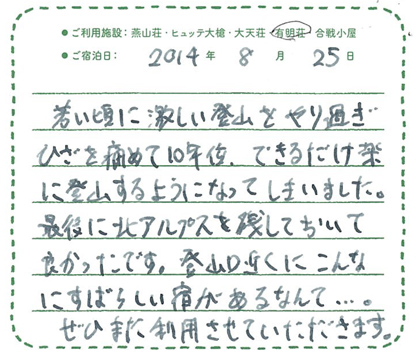 ● ご利用施設：燕山荘・ヒュッテ大槍・大天荘・有明荘・合戦小屋
● ご宿泊日： 2014 年 8 月 25 日
若い頃に激しい登山をやり過ぎ
ひざを痛めて10年位、できるだけ楽
に登山するようになってしまいました。
最後に北アルプスを残しておいて
良かったです。登山口近くにこんな
にすばらしい宿があるなんて…。
ぜひまた利用させていただきます。